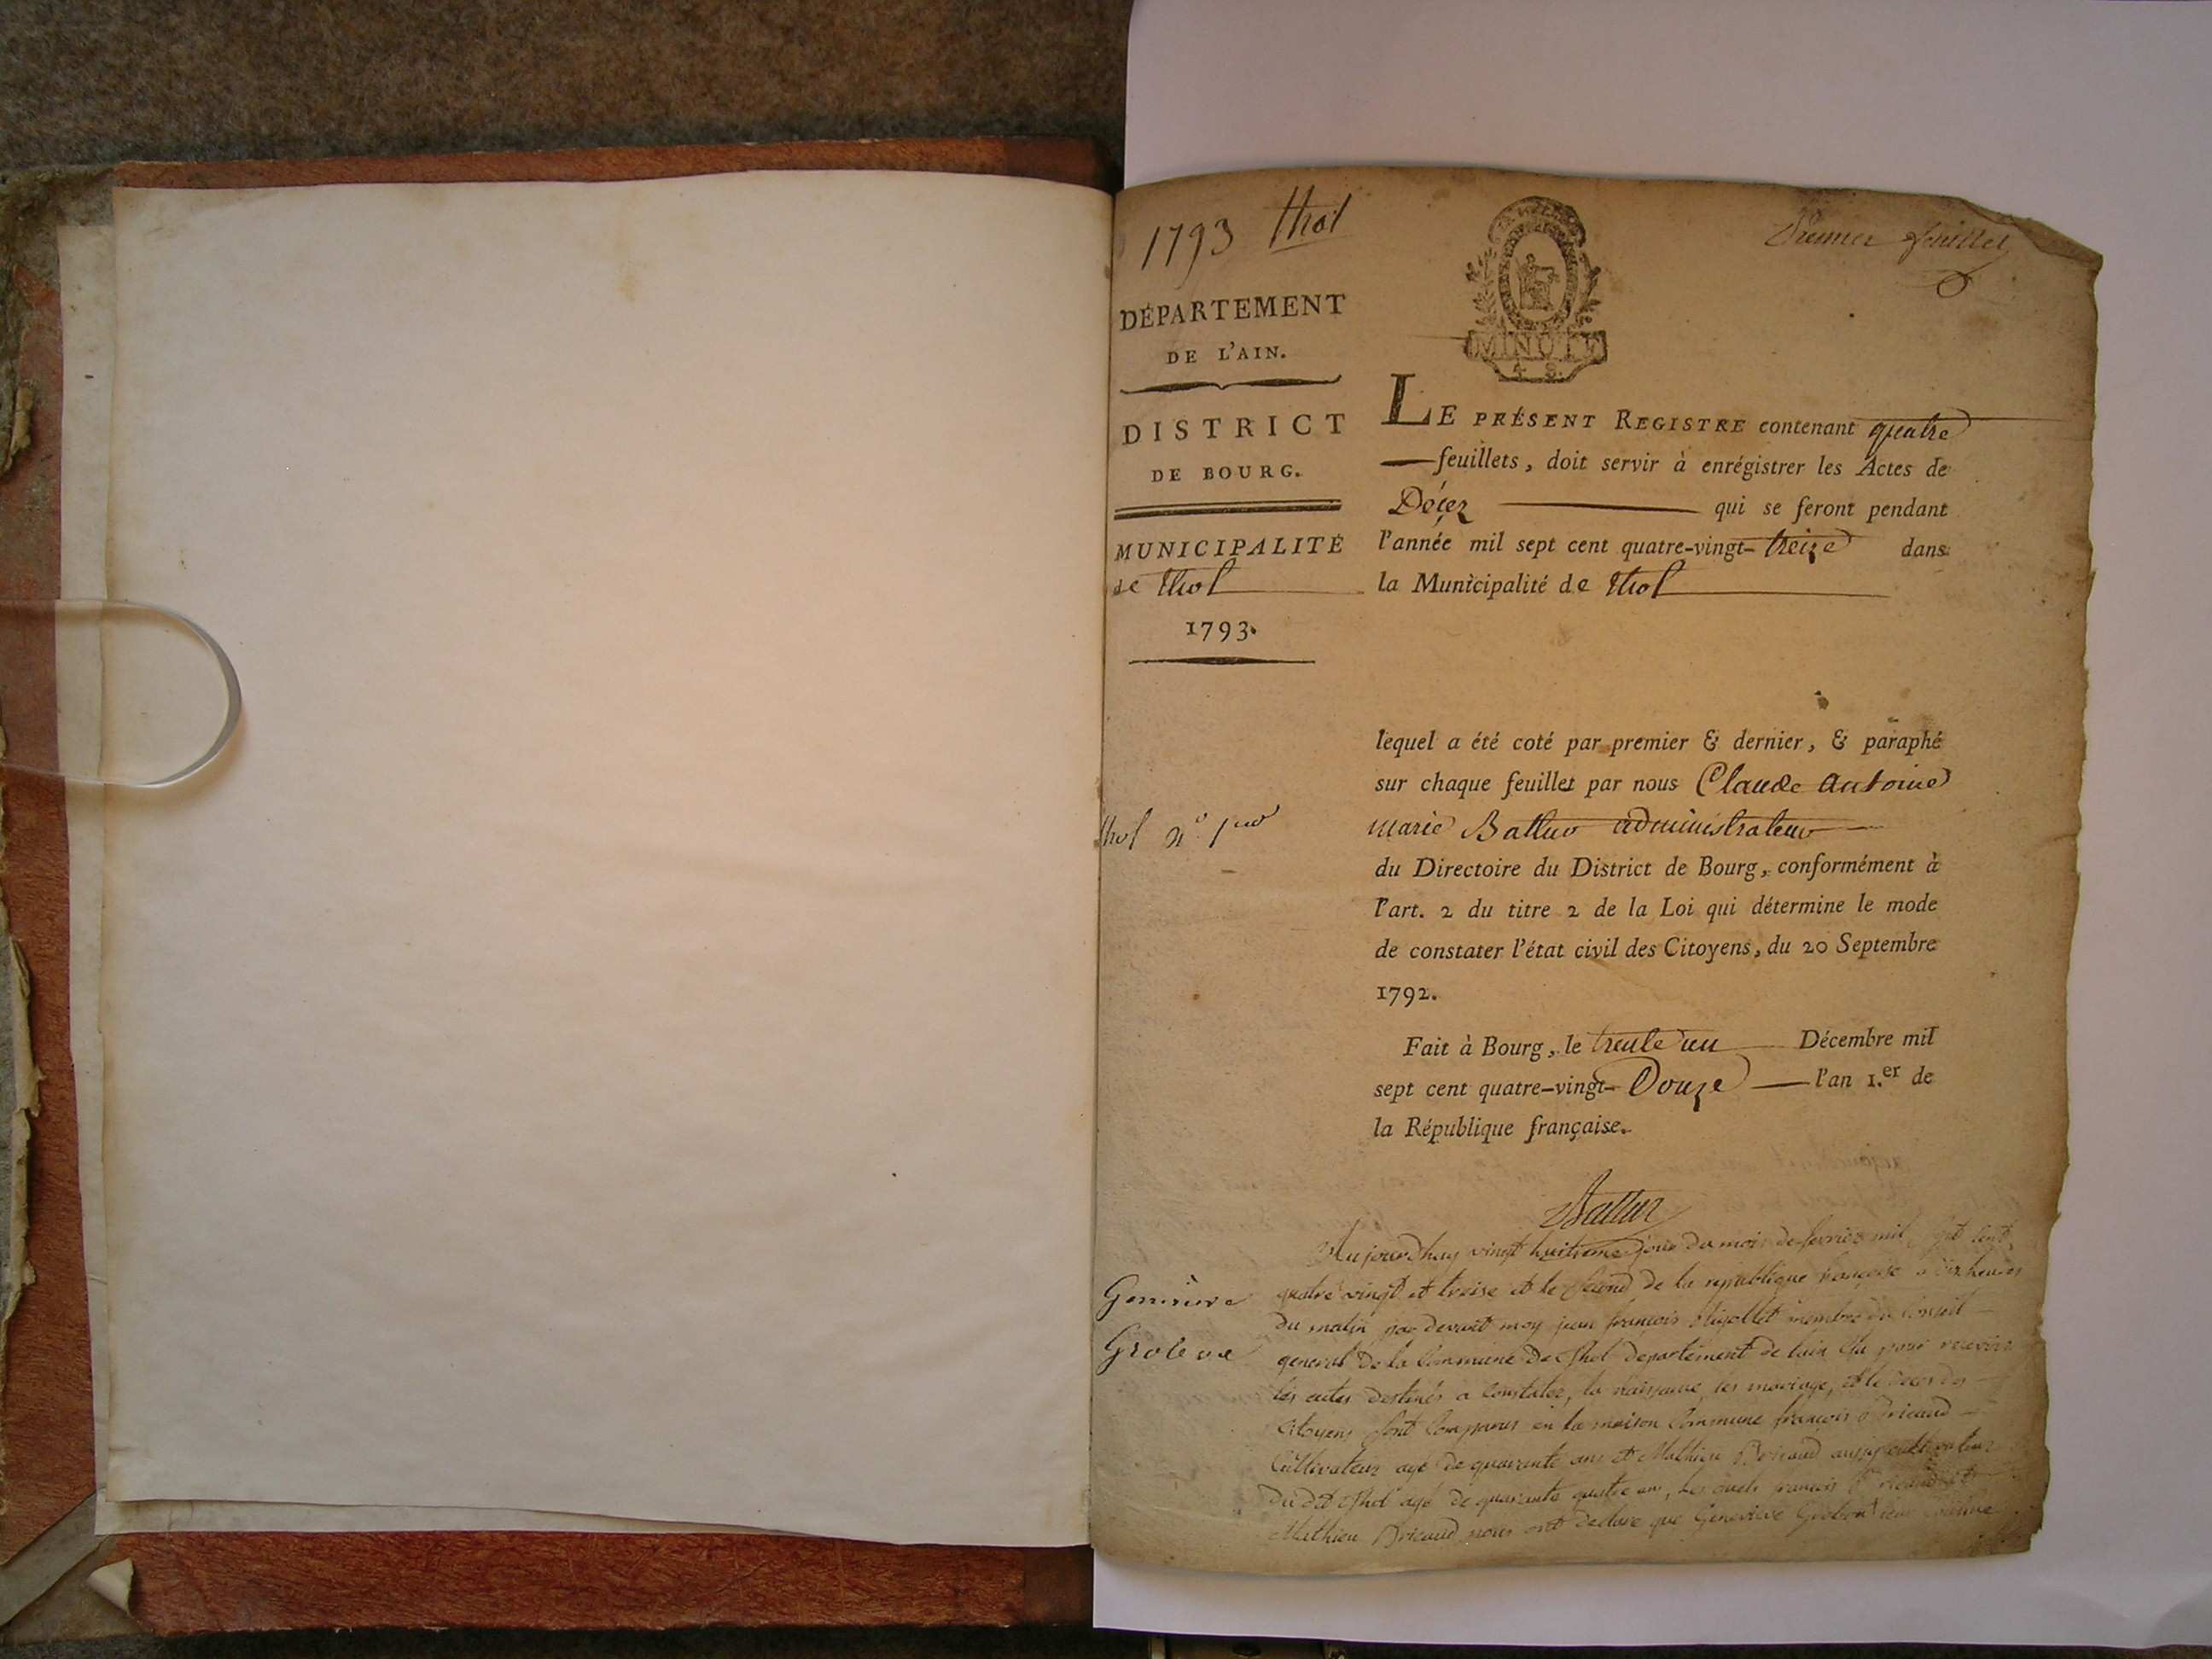 1793 thol
Premier feuillet
DÉPARTEMENT
DE L'AIN.
DISTRICT
DE BOURG.
MUNICIPALITÉ
de thol
1793.
MINUTE
4 S.
LE PRÉSENT REGISTRE contenant quatre
feuillets, doit servir à enrégistrer les Actes de
Décez qui se feront pendant
l'année mil sept cent quatre-vingt-treize dans
la Municipalité de thol
lequel a été coté par premier & dernier, & paraphé
sur chaque feuillet par nous Claude Antoine
thol n.o 1er
marie Battur administrateur
du Directoire du District de Bourg, conformément à
l'art. 2 du titre 2 de la Loi qui détermine le mode
de constater l'état civil des Citoyens, du 20 Septembre
1792.
Fait à Bourg, le trente un Décembre mil
sept cent quatre-vingt-Douze l'an 1.er de
la République française.
Battur
Genevieve
Aujourdhuy vingt huitieme jour du mois de fevrier mil sept cent
quatre vingt et treise et le second de la republique françoise a dix heures
du matin par devant moy jean françois membre du conseil
general de la Commune de thol departement de lain elu pour recevoir
les actes destinés a Constater, la naissance, les mariage, et le deces des
Citoyens sont Comparus en la maison Commune françois Bricaud
Cultivateur agé de quarante ans et Mathieu Bricaud aussy cultivateur
du dit thol agé de quarante quatre ans, Lesquels françois Bricaud et
Mathieu Bricaud nous ont declare que Genevieve leur